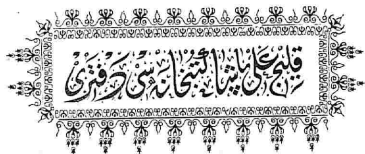 قلیج علی پاشا كتبخانه سی دفتری